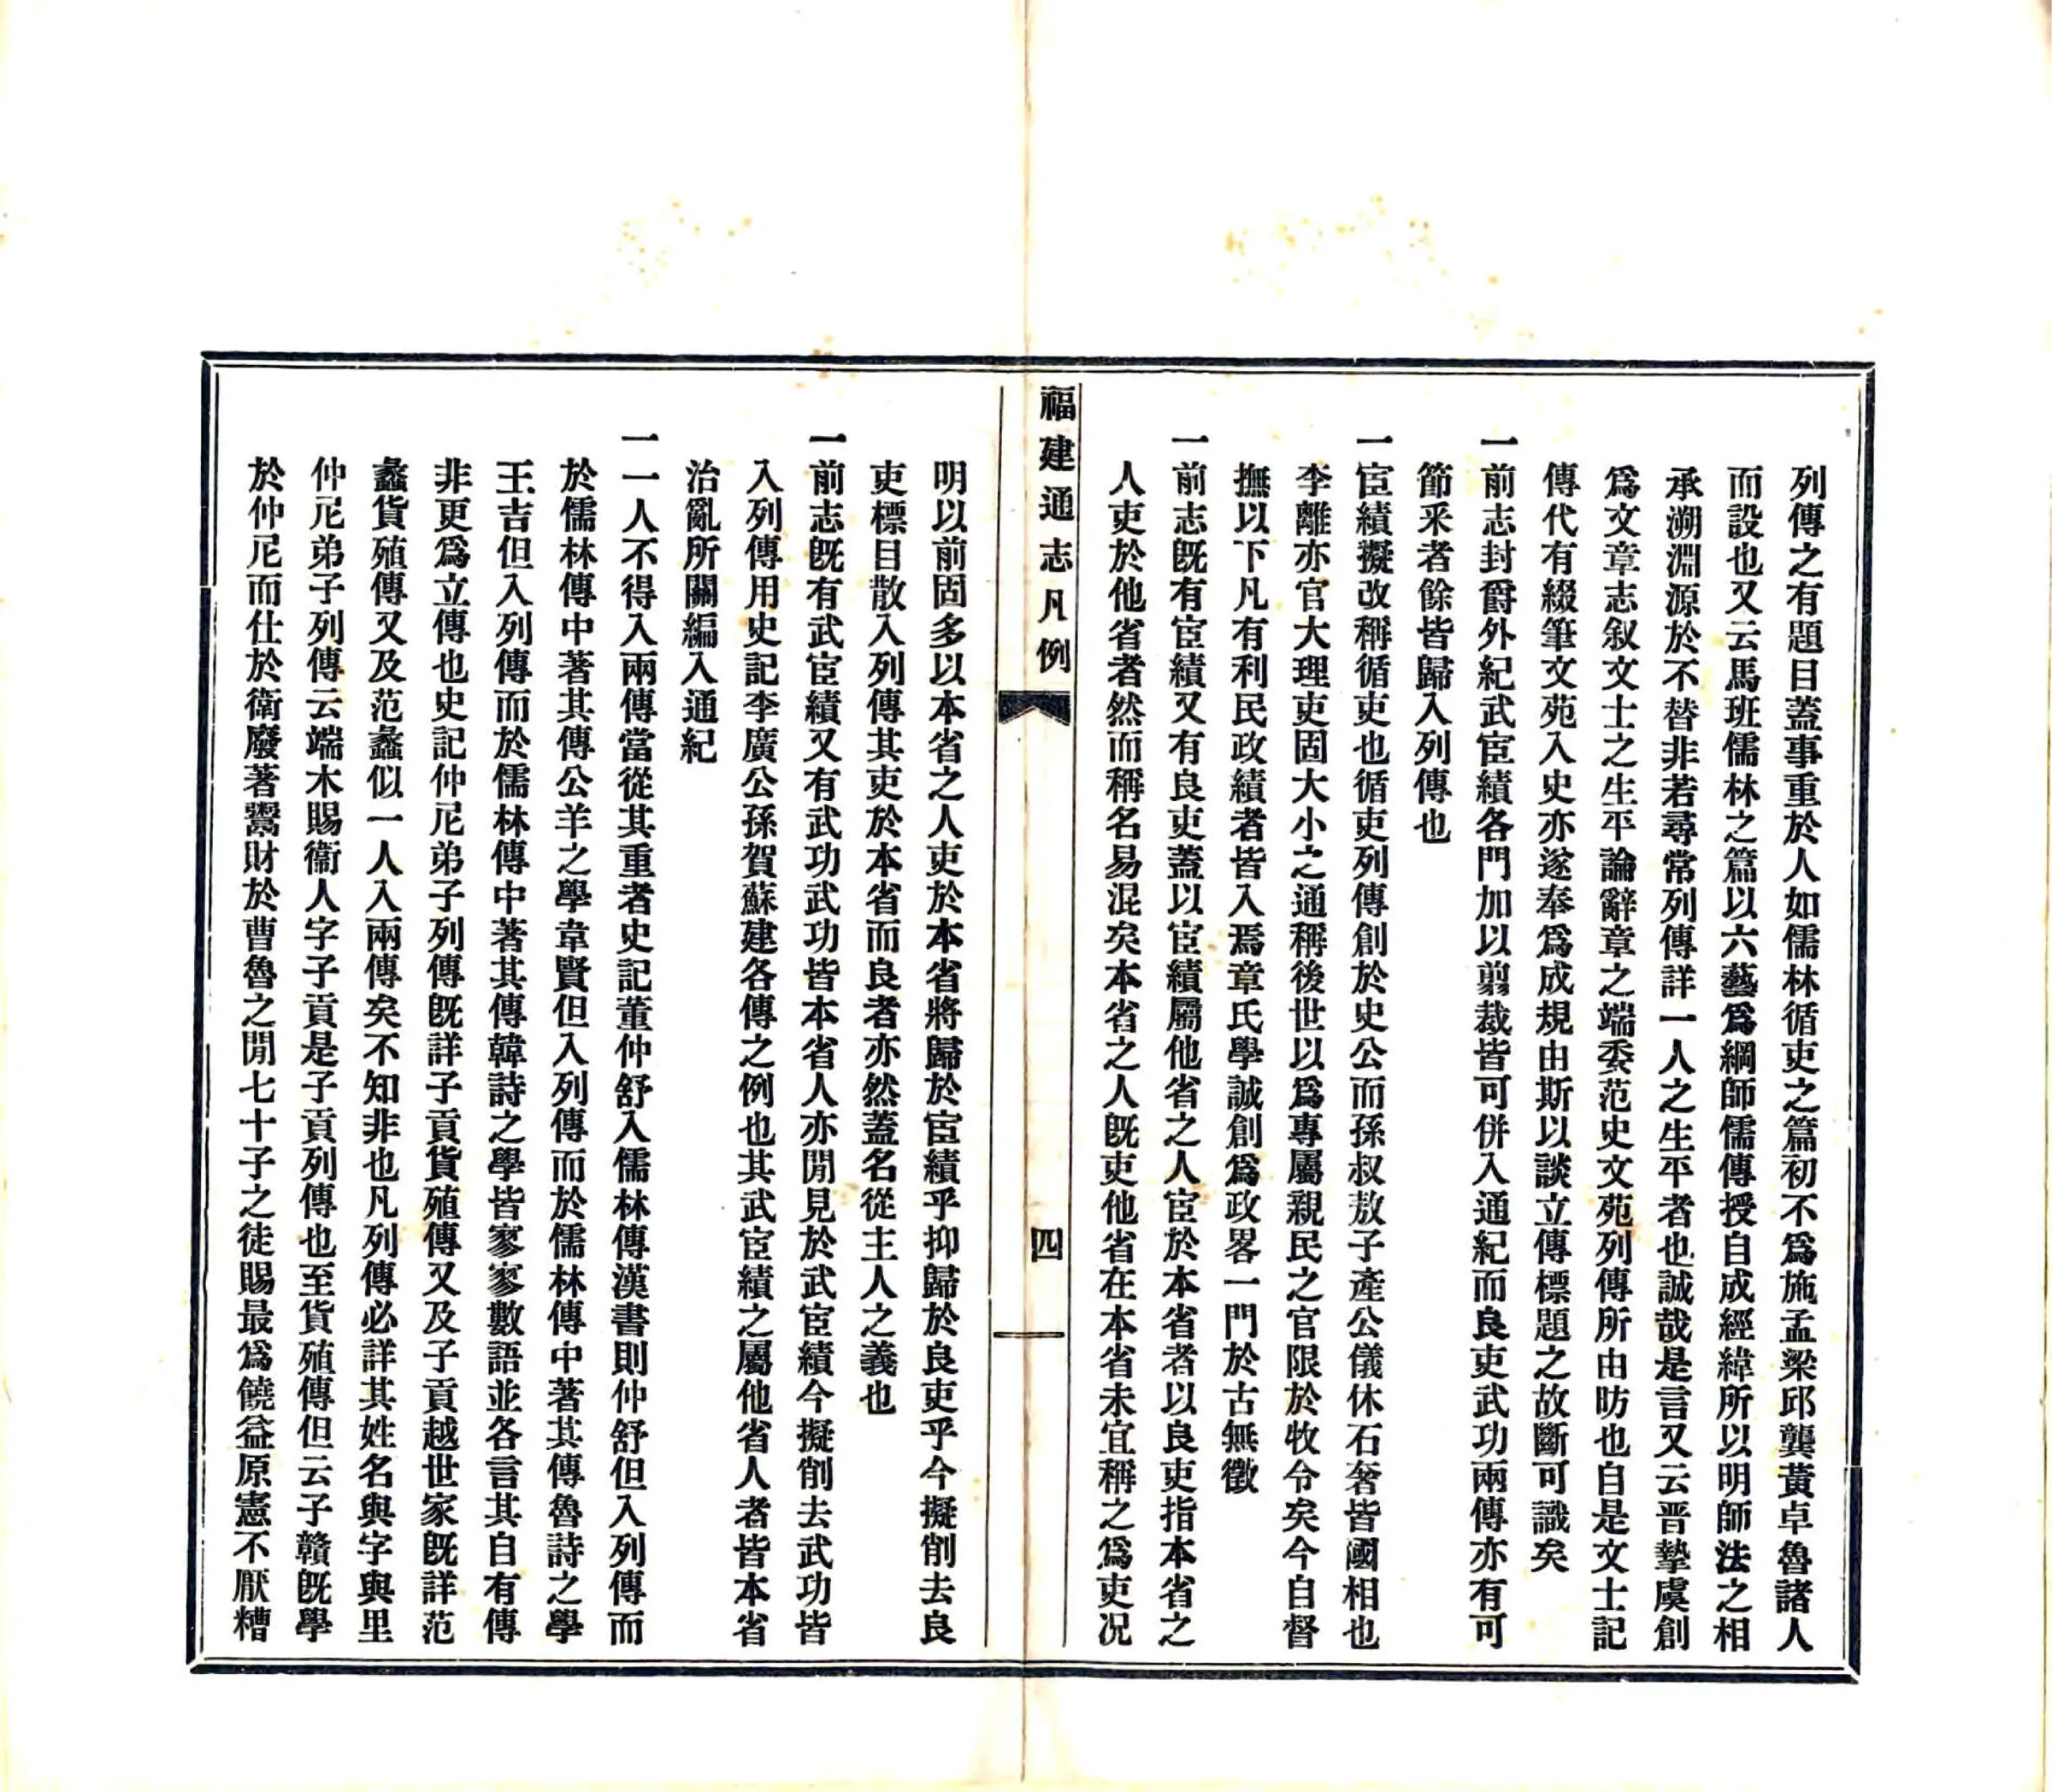 列傳之有題目蓋事重於人如儒林循吏之篇初不爲施孟梁邱龔黃卓魯諸人
而設也又云馬班儒林之篇以六藝爲綱師儒傳授自成經緯所以明師法之相
承溯淵源於不替非若尋常列傳詳一人之生平者也誠哉是言又云晋摯虞創
爲文章志叙文士之生平論辭章之端委范史文苑列傳所由昉也自是文士記
傳代有綴筆文苑入史亦遂奉爲成規由斯以談立傳標題之故斷可識矣
一前志封爵外紀武宦績各門加以剪裁皆可併入通紀而良吏武功兩傳亦有可
節采者餘皆歸入列傳也
一宦績擬改稱循吏也循吏列傳創於史公而孫叔敖子產公儀休石奢皆國相也
李離亦官大理吏固大小之通稱後世以爲專屬親民之官限於牧令矣今自督
撫以下凡有利民政績者皆入焉章氏學誠創爲政畧一門於古無徵
一前志旣有宦績又有良吏蓋以宦績屬他省之人宦於本省者以良吏指本省之
人吏於他省者然而稱名易混矣本省之人旣吏他省在本省未宜稱之爲吏况
福建通志凡例
四
明以前固多以本省之人吏於本省將歸於宦績乎抑歸於良吏乎今擬削去良
吏標目散入列傳其吏於本省而良者亦然蓋名從主人之義也
一前志旣有武宦績又有武功武功皆本省人亦閒見於武宦績今擬削去武功皆
入列傳用史記李廣公孫賀蘇建各傳之例也其武宦績之屬他省人者皆本省
治亂所關編入通紀
一一人不得入兩傳當從其重者史記董仲舒入儒林傳漢書則仲舒但入列傳而
於儒林傳中著其傳公羊之學韋賢但入列傳而於儒林傳中著其傳魯詩之學
王吉但入列傳而於儒林傳中著其傳韓詩之學皆寥寥數語並各言其自有傳
非更爲立傳也史記仲尼弟子列傳旣詳子貢貨殖傳又及子貢越世家旣詳范
蠡貨殖傳又及范蠡似一人入兩傳矣不知非也凡列傳必詳其姓名與字與里
仲尼弟子列傳云端木賜衞人字子貢是子貢列傳也至貨殖傳但云子贛旣學
於仲尼而仕於衛廢著鬻財於曹魯之閒七十子之徒賜最爲饒益原憲不厭糟